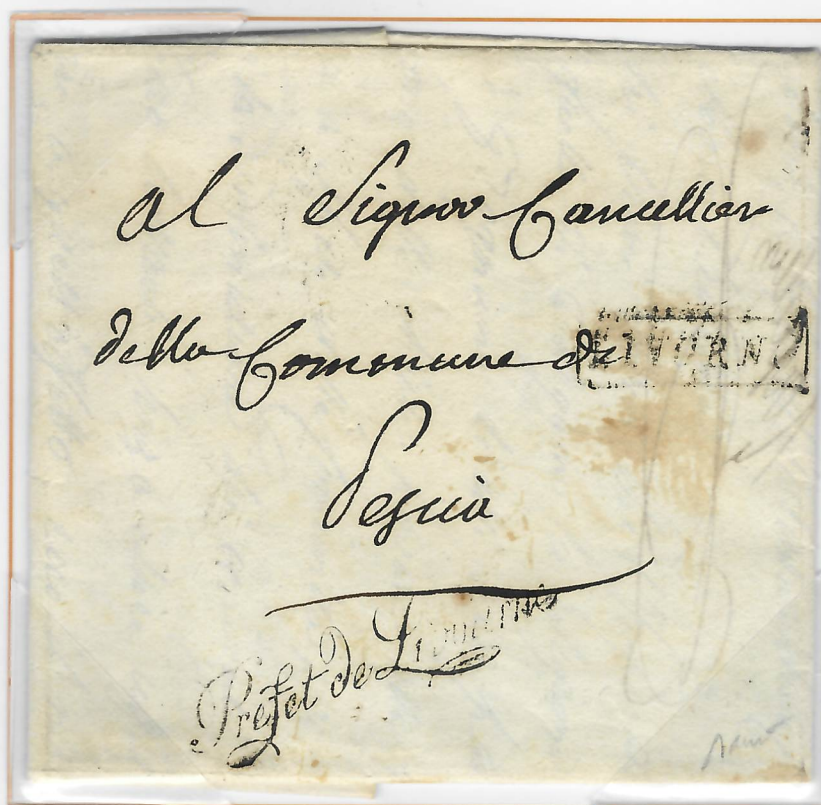 Al Signor Cancellier
della Commune di
LIVORNO
Pescia
Prefet de Livourne